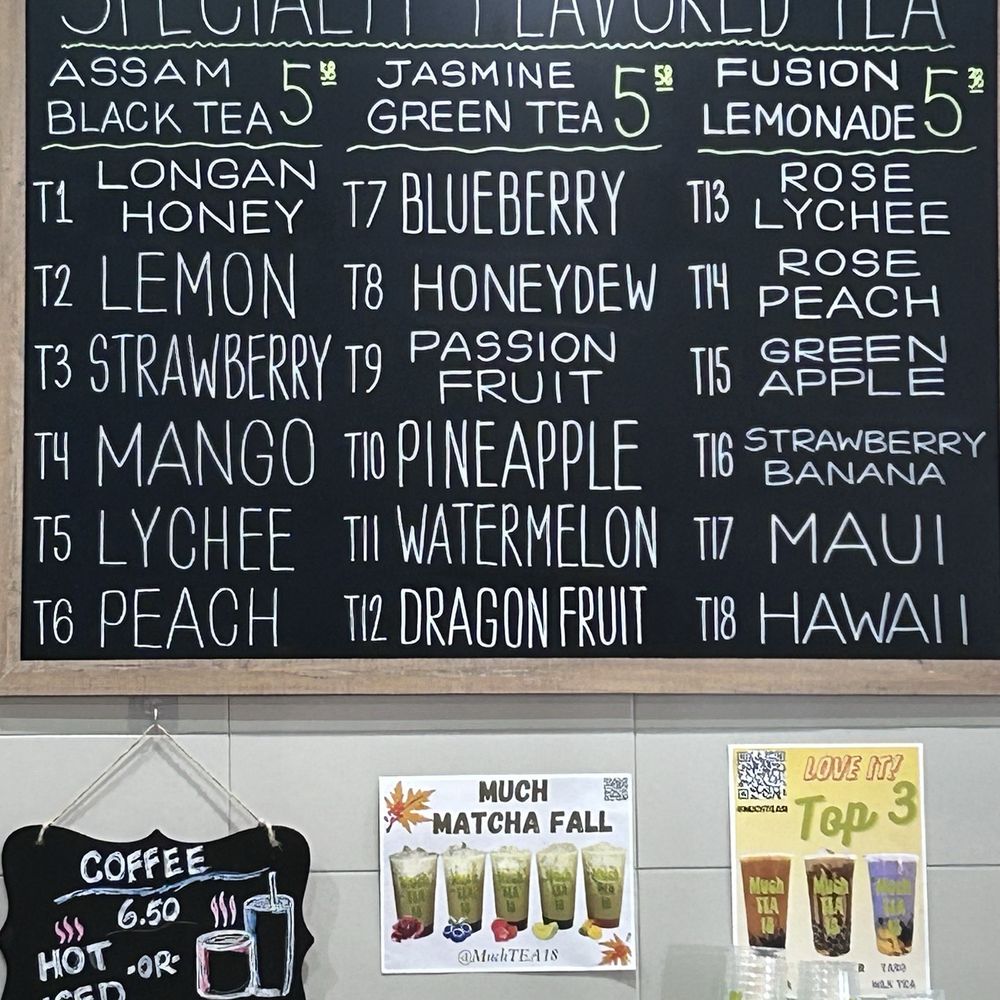 SPECIALTY FLAVORED TEA
ASSAM
BLACK TEA 5.58
JASMINE
GREEN TEA 5.58
FUSION
LEMONADE 5.38
T1 LONGAN
HONEY
T2 LEMON
T3 STRAWBERRY
T4 MANGO
T5 LYCHEE
T6 PEACH
T7 BLUEBERRY
T8 HONEYDEW
T9 PASSION
FRUIT
T10 PINEAPPLE
T11 WATERMELON
T12 DRAGON FRUIT
T13 ROSE
LYCHEE
T14 ROSE
PEACH
T15 GREEN
APPLE
T16 STRAWBERRY
BANANA
T17 MAUI
T18 HAWAII
COFFEE
6.50
HOT -OR-
ICED
MUCH
MATCHA FALL
@MuchTEA18
LOVE IT!
Top 3
Much
TEA
18
Much
TEA
18
Much
TEA
18
TARO
MILK TEA